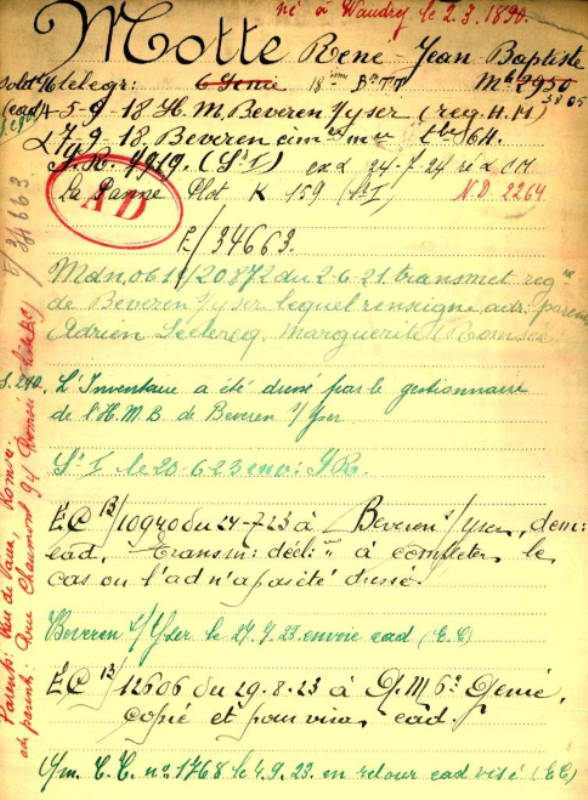 né à Waudrez le 2.3.1890.
Motte René-Jean Baptiste
Soldt télégr: 6 Génie 18 ième Bon T.T. Mle 2950
5805
(cad) + 5-9-18 H.M. Beveren s/yser (reg. H.M)
7.9.18. Beveren cim re mre tbe 64.
S.R. 4919. (Sn I) ex 24-7-24 ré
La Panne Plot K 159 (Sn I) N.D. 2264
AD
E/34663
E/34663.
Mdn. 0619/20872 du 2-6-21. transmet regre
de Beveren s/yser lequel renseigne adr: parents
Adrien Leclercq. Marguerite Romsée
S.240. L'Inventaire a été dressé par le gestionnaire
de l'H.M.B. de Beveren s/Yser
Sn I le 20-6-23 env: S.R.
EC 13/10940 du 24-7-23 à Beveren s/yser, dem:
cad. transm: décl: on à compléter, le
cas où l'ad n'a pas été dressé.
Beveren s/Yser le 27.7.23. envoie cad (E.C)
EC 13/12606 du 29.8.23 à Q.M 6e Génie,
copie et pour visa, cad.
Ym. C.C. no 1768 le 4.9.23. en retour cad visé (E.C)
Parents: Rue de Vaux, Romsée
adr parents: Rue Chaumont 94 Romsée